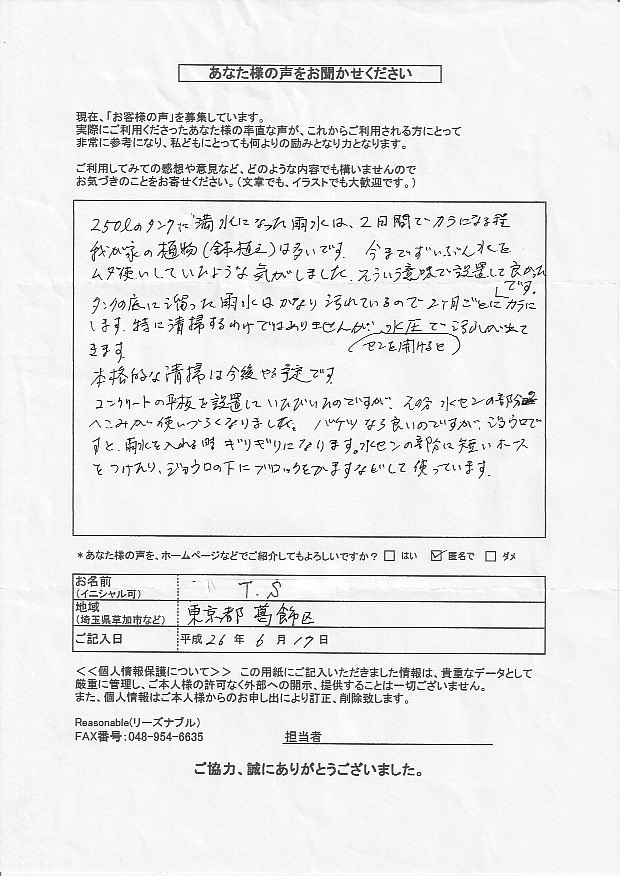 あなた様の声をお聞かせください
現在、「お客様の声」を募集しています。
実際にご利用くださったあなた様の率直な声が、これからご利用される方にとって
非常に参考になり、私どもにとっても何よりの励みとなり力となります。
ご利用してみての感想や意見など、どのような内容でも構いませんので
お気づきのことをお寄せください。(文章でも、イラストでも大歓迎です。)
250ℓのタンクに満水になった雨水は、2日間でカラになる程
我が家の植物(鉢植え)は多いです。今までずいぶん水を
ムダ使いしていたような気がしました。そういう意味で設置して良かった
です。
タンクの底に溜った雨水はかなり汚れているので2ヶ月ごとにカラに
します。特に清掃するわけではありませんが、水圧で汚れが出て
きます (センを開けると)
本格的な清掃は今後やる予定です
コンクリートの平板を設置していただいたのですが、その分水センの部分の
へこみが使いづらくなりました。バケツなら良いのですが、ジョウロで
すと、雨水を入れる時ぎりぎりになります。水センの部分に短いホース
をつけたり、ジョウロの下にブロックをかますなどして使っています。
*あなた様の声を、ホームページなどでご紹介してもよろしいですか? □ はい ☑ 匿名で □ ダメ
お名前
(イニシャル可) T.S
地域
(埼玉県草加市など) 東京都 葛飾区
ご記入日 平成 26 年 6 月 17 日
<<個人情報保護について>> この用紙にご記入いただきました情報は、貴重なデータとして
厳重に管理し、ご本人様の許可なく外部への開示、提供することは一切ございません。
また、個人情報はご本人様からのお申し出により訂正、削除致します。
Reasonable(リーズナブル)
FAX番号:048-954-6635 担当者
ご協力、誠にありがとうございました。